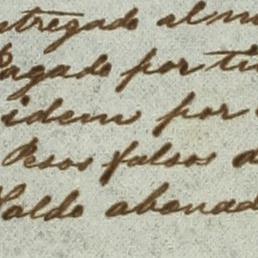 ntregado alm
Pagado por ti
idem por
Pesos falsos d
Saldo abonad